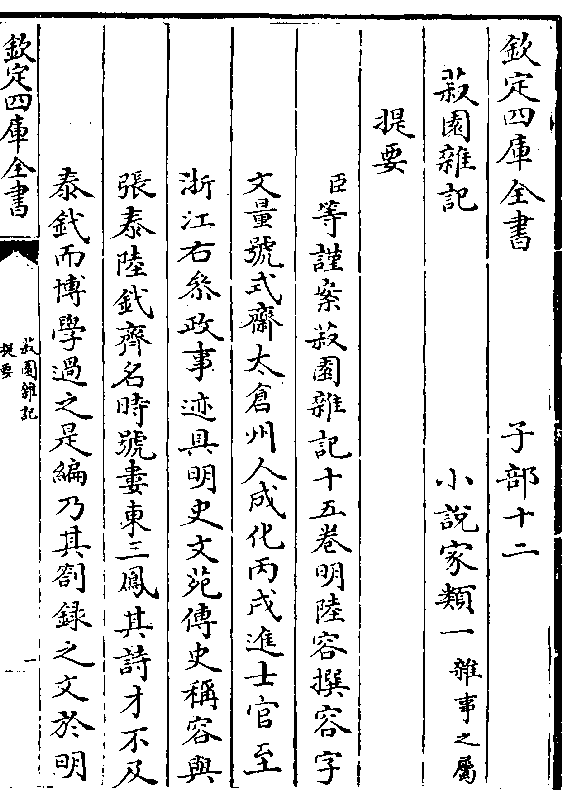 欽定四庫全書 子部十二
菽園雜記 小說家類一 雜事之屬
提要
臣等謹案菽園雜記十五卷明陸容撰容字
文量號式齋太倉州人成化丙戌進士官至
浙江右叅政事迹具明史文苑傳史稱容與
張泰陸釴齊名時號婁東三鳳其詩才不及
泰釴而博學過之是編乃其劄録之文於明
欽定四庫全書
菽園雜記
提要
一